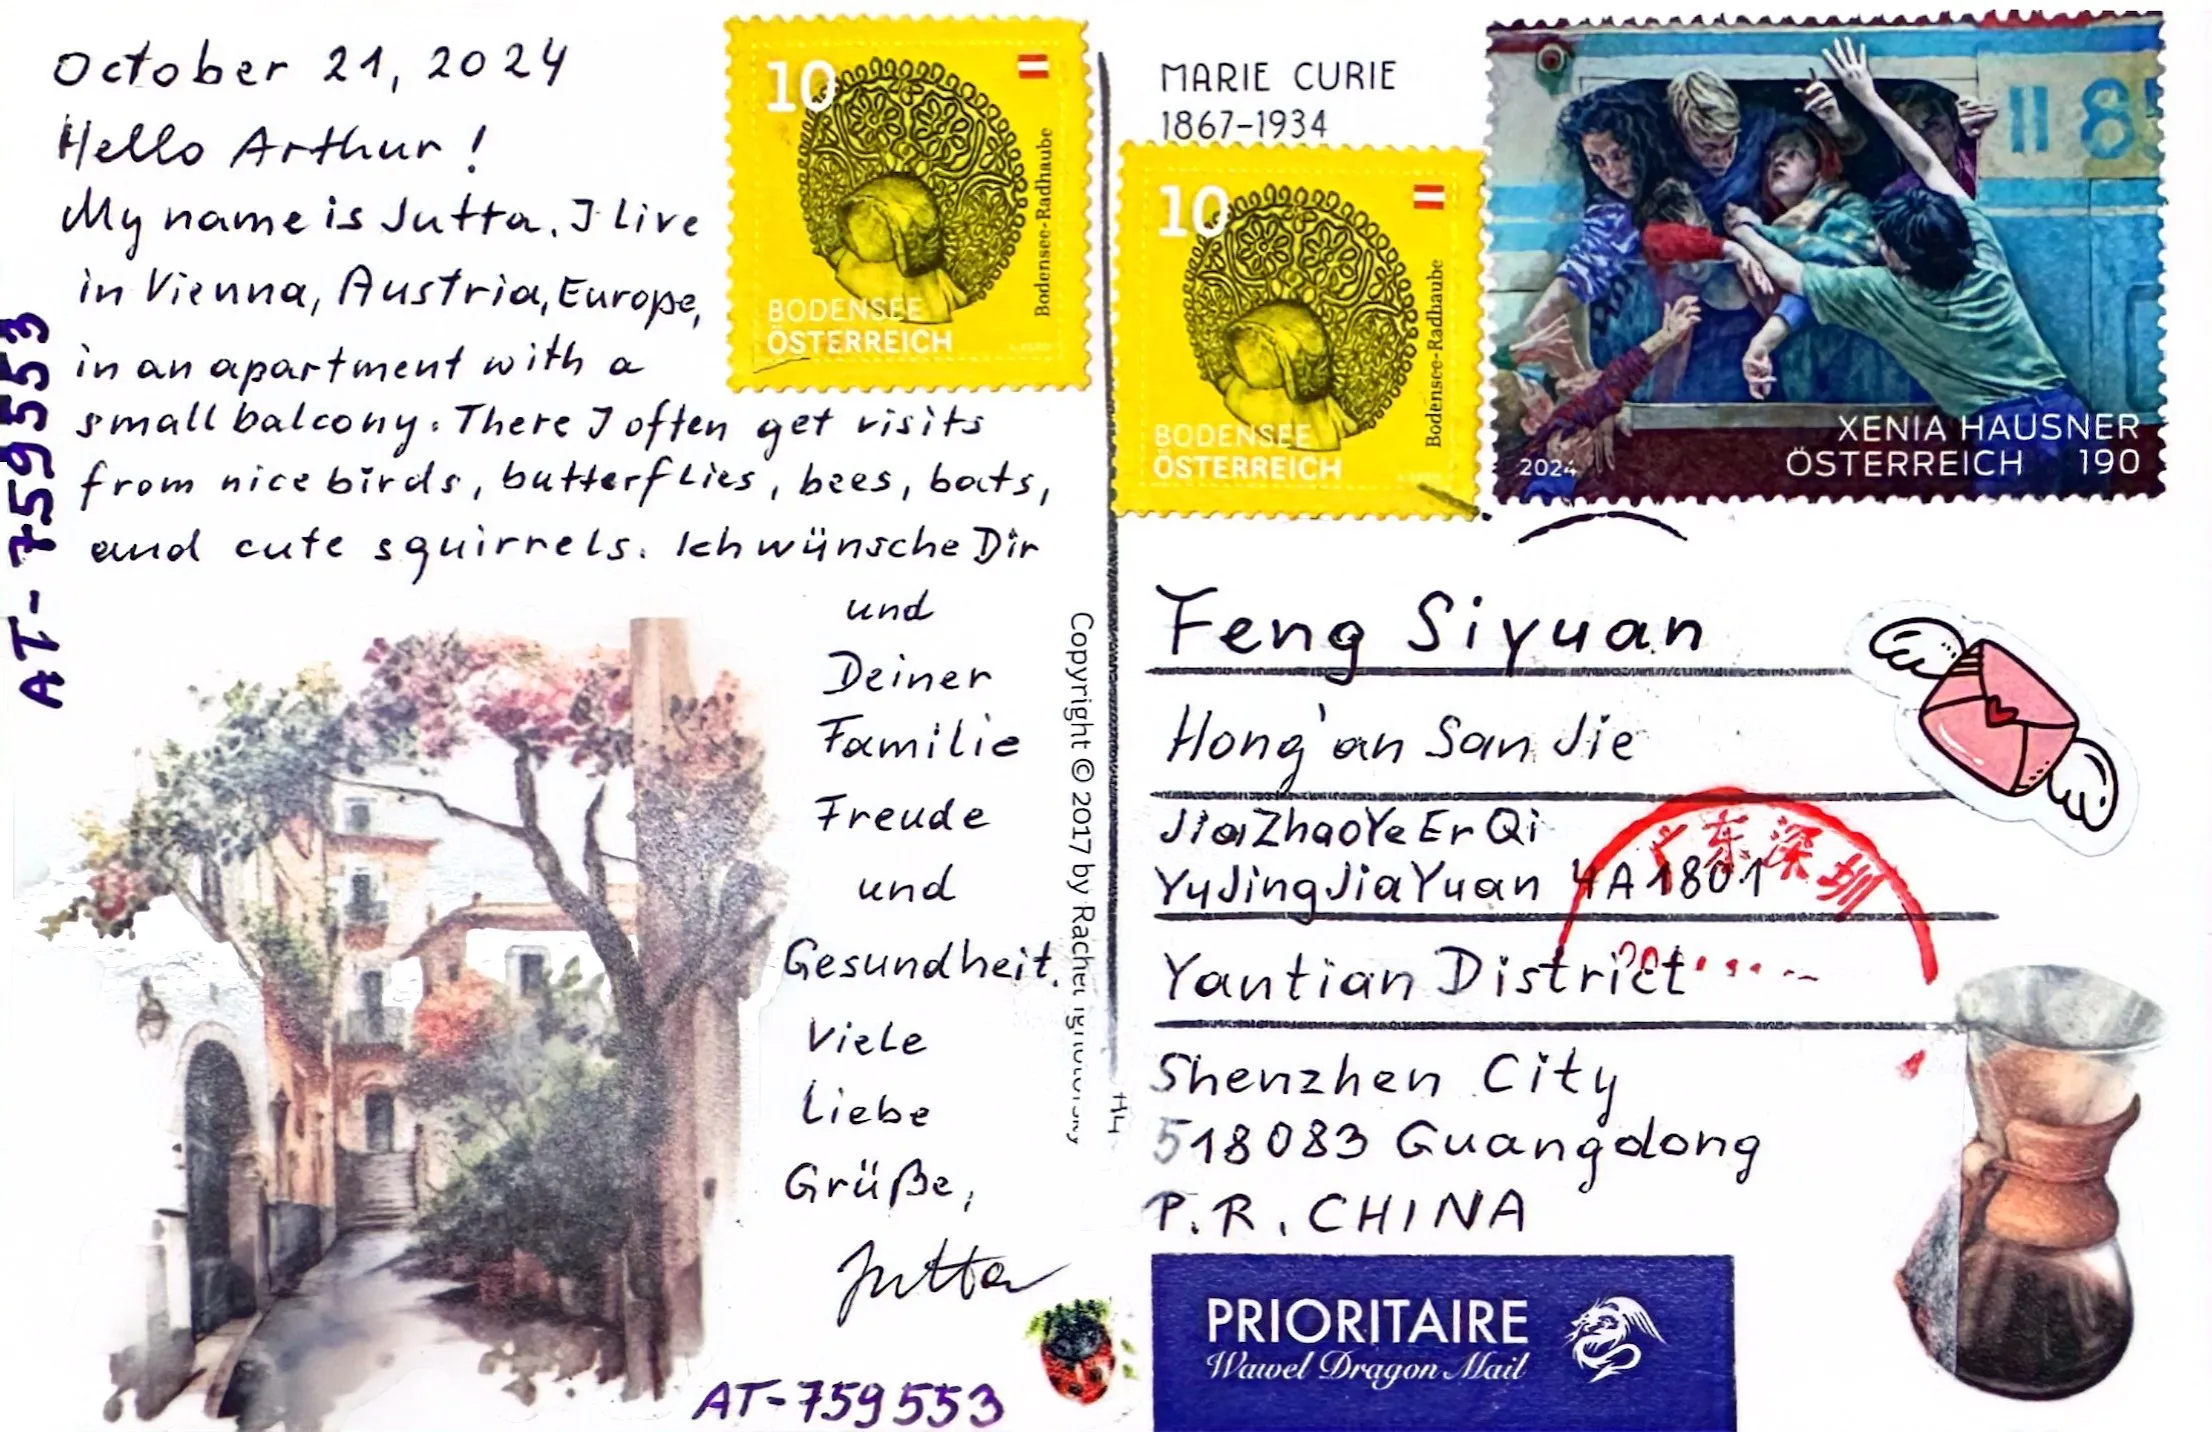 October 21, 2024
Hello Arthur!
My name is Jutta. I live
in Vienna, Austria, Europe,
in an apartment with a
small balcony. There I often get visits
from nice birds, butterflies, bees, bats,
and cute squirrels. Ich wünsche Dir
und
Deiner
Familie
Freude
und
Gesundheit.
Viele
Liebe
Grüße,
Jutta
AT-759553
AT-759553
10
Bodensee-Radhaube
BODENSEE
ÖSTERREICH
MARIE CURIE
1867-1934
10
Bodensee-Radhaube
BODENSEE
ÖSTERREICH
11 85
XENIA HAUSNER
2024 ÖSTERREICH 190
Copyright © 2017 by Rachel
Feng Siyuan
Hong'an San Jie
JiaZhaoYe Er Qi
YuJingJiaYuan 4A1801
Yantian District
Shenzhen City
518083 Guangdong
P.R. CHINA
广东深圳
PRIORITAIRE
Wawel Dragon Mail